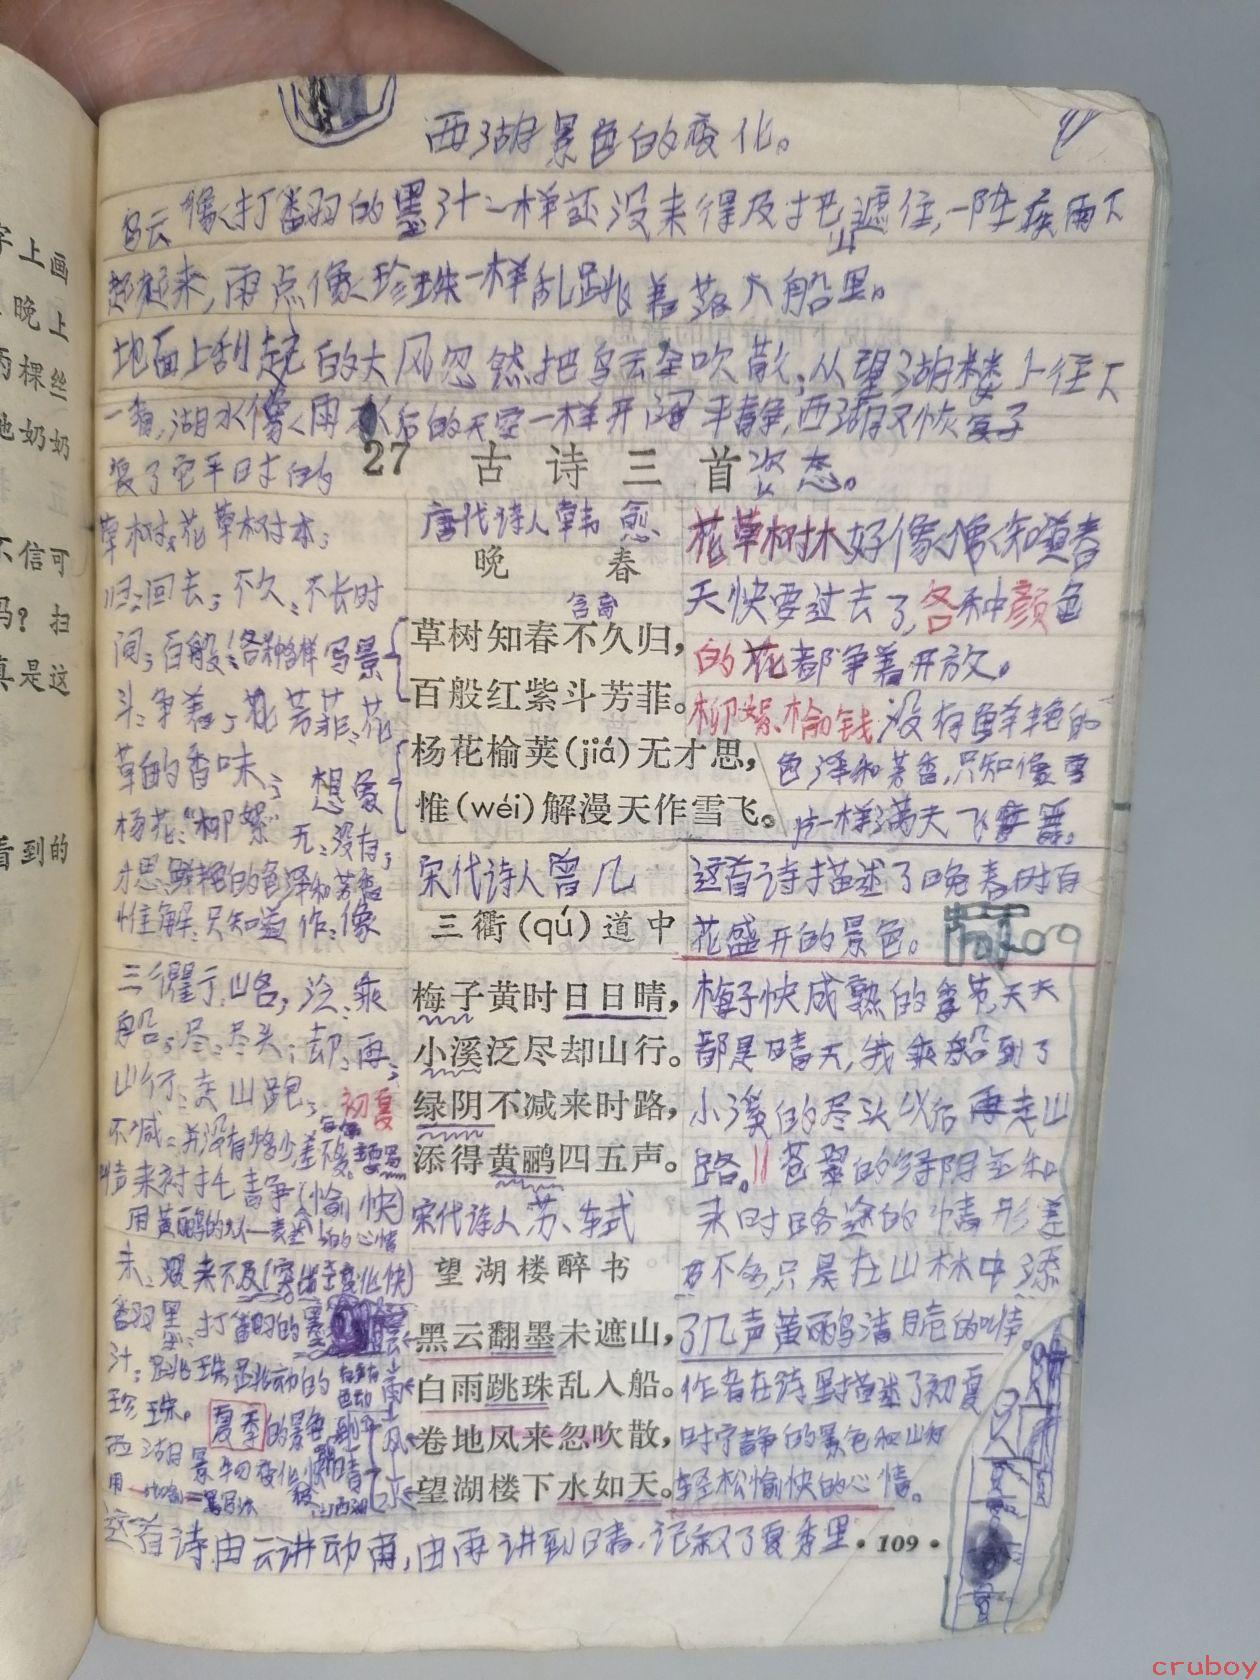 西湖景色的变化。
乌云像打翻的墨汁一样还没来得及把山遮住,一阵疾雨下
起起来,雨点像珍珠一样乱跳着落入船里。
地面上刮起的大风忽然把乌云全吹散,从望湖楼上往下
一看,湖水像雨水后的天空一样开阔平静,西湖又恢复了
复了它平日才的
27 古诗三首
姿态。
唐代诗人韩愈
晚春
含苞
草树知春不久归,
百般红紫斗芳菲。
杨花榆荚(jiá)无才思,
惟(wéi)解漫天作雪飞。
草树:花草树木;
归:回去;不久:不长时
间;百般:各种各样 写景
斗:争着;芳菲:花
草的香味; 想象
杨花:“柳絮” 无:没有;
才思:鲜艳的色泽和芳香
惟解:只知道 作:像
花草树木好像懂知道春
天快要过去了,各种颜色
的花都争着开放。
柳絮、榆钱没有鲜艳的
色泽和芳香,只知像雪
片一样满天飞舞。
这首诗描述了晚春时百
花盛开的景色。
宋代诗人曾几
三衢(qú)道中
梅子黄时日日晴,
小溪泛尽却山行。
绿阴不减来时路,
添得黄鹂四五声。
三衢:山名;泛:乘
船;尽:尽头;却:再;
山行:走山路;
初夏
不减:并没有多少差
情来衬托静(愉快)
梅子快成熟的季节,天天
都是晴天,我乘船到了
小溪的尽头以后再走山
路。苍翠的绿阴和
来时路途的情形差
不多只是在山林中添
了几声黄鹂清脆的叫声。
作者在诗里描述了初夏
时宁静的景色和山行
轻松愉快的心情。
宋代诗人苏轼
望湖楼醉书
黑云翻墨未遮山,
白雨跳珠乱入船。
卷地风来忽吹散,
望湖楼下水如天。
翻墨:打翻的墨
汁;跳珠:跳动的
珍珠。
夏季的景色
西湖景物变化快
这首诗由云讲到雨,由雨讲到晴,记叙了夏季里
·109·
字上画
晚上
两棵丝
他奶奶
不信可
吗?扫
真是这
看到的
cruboy